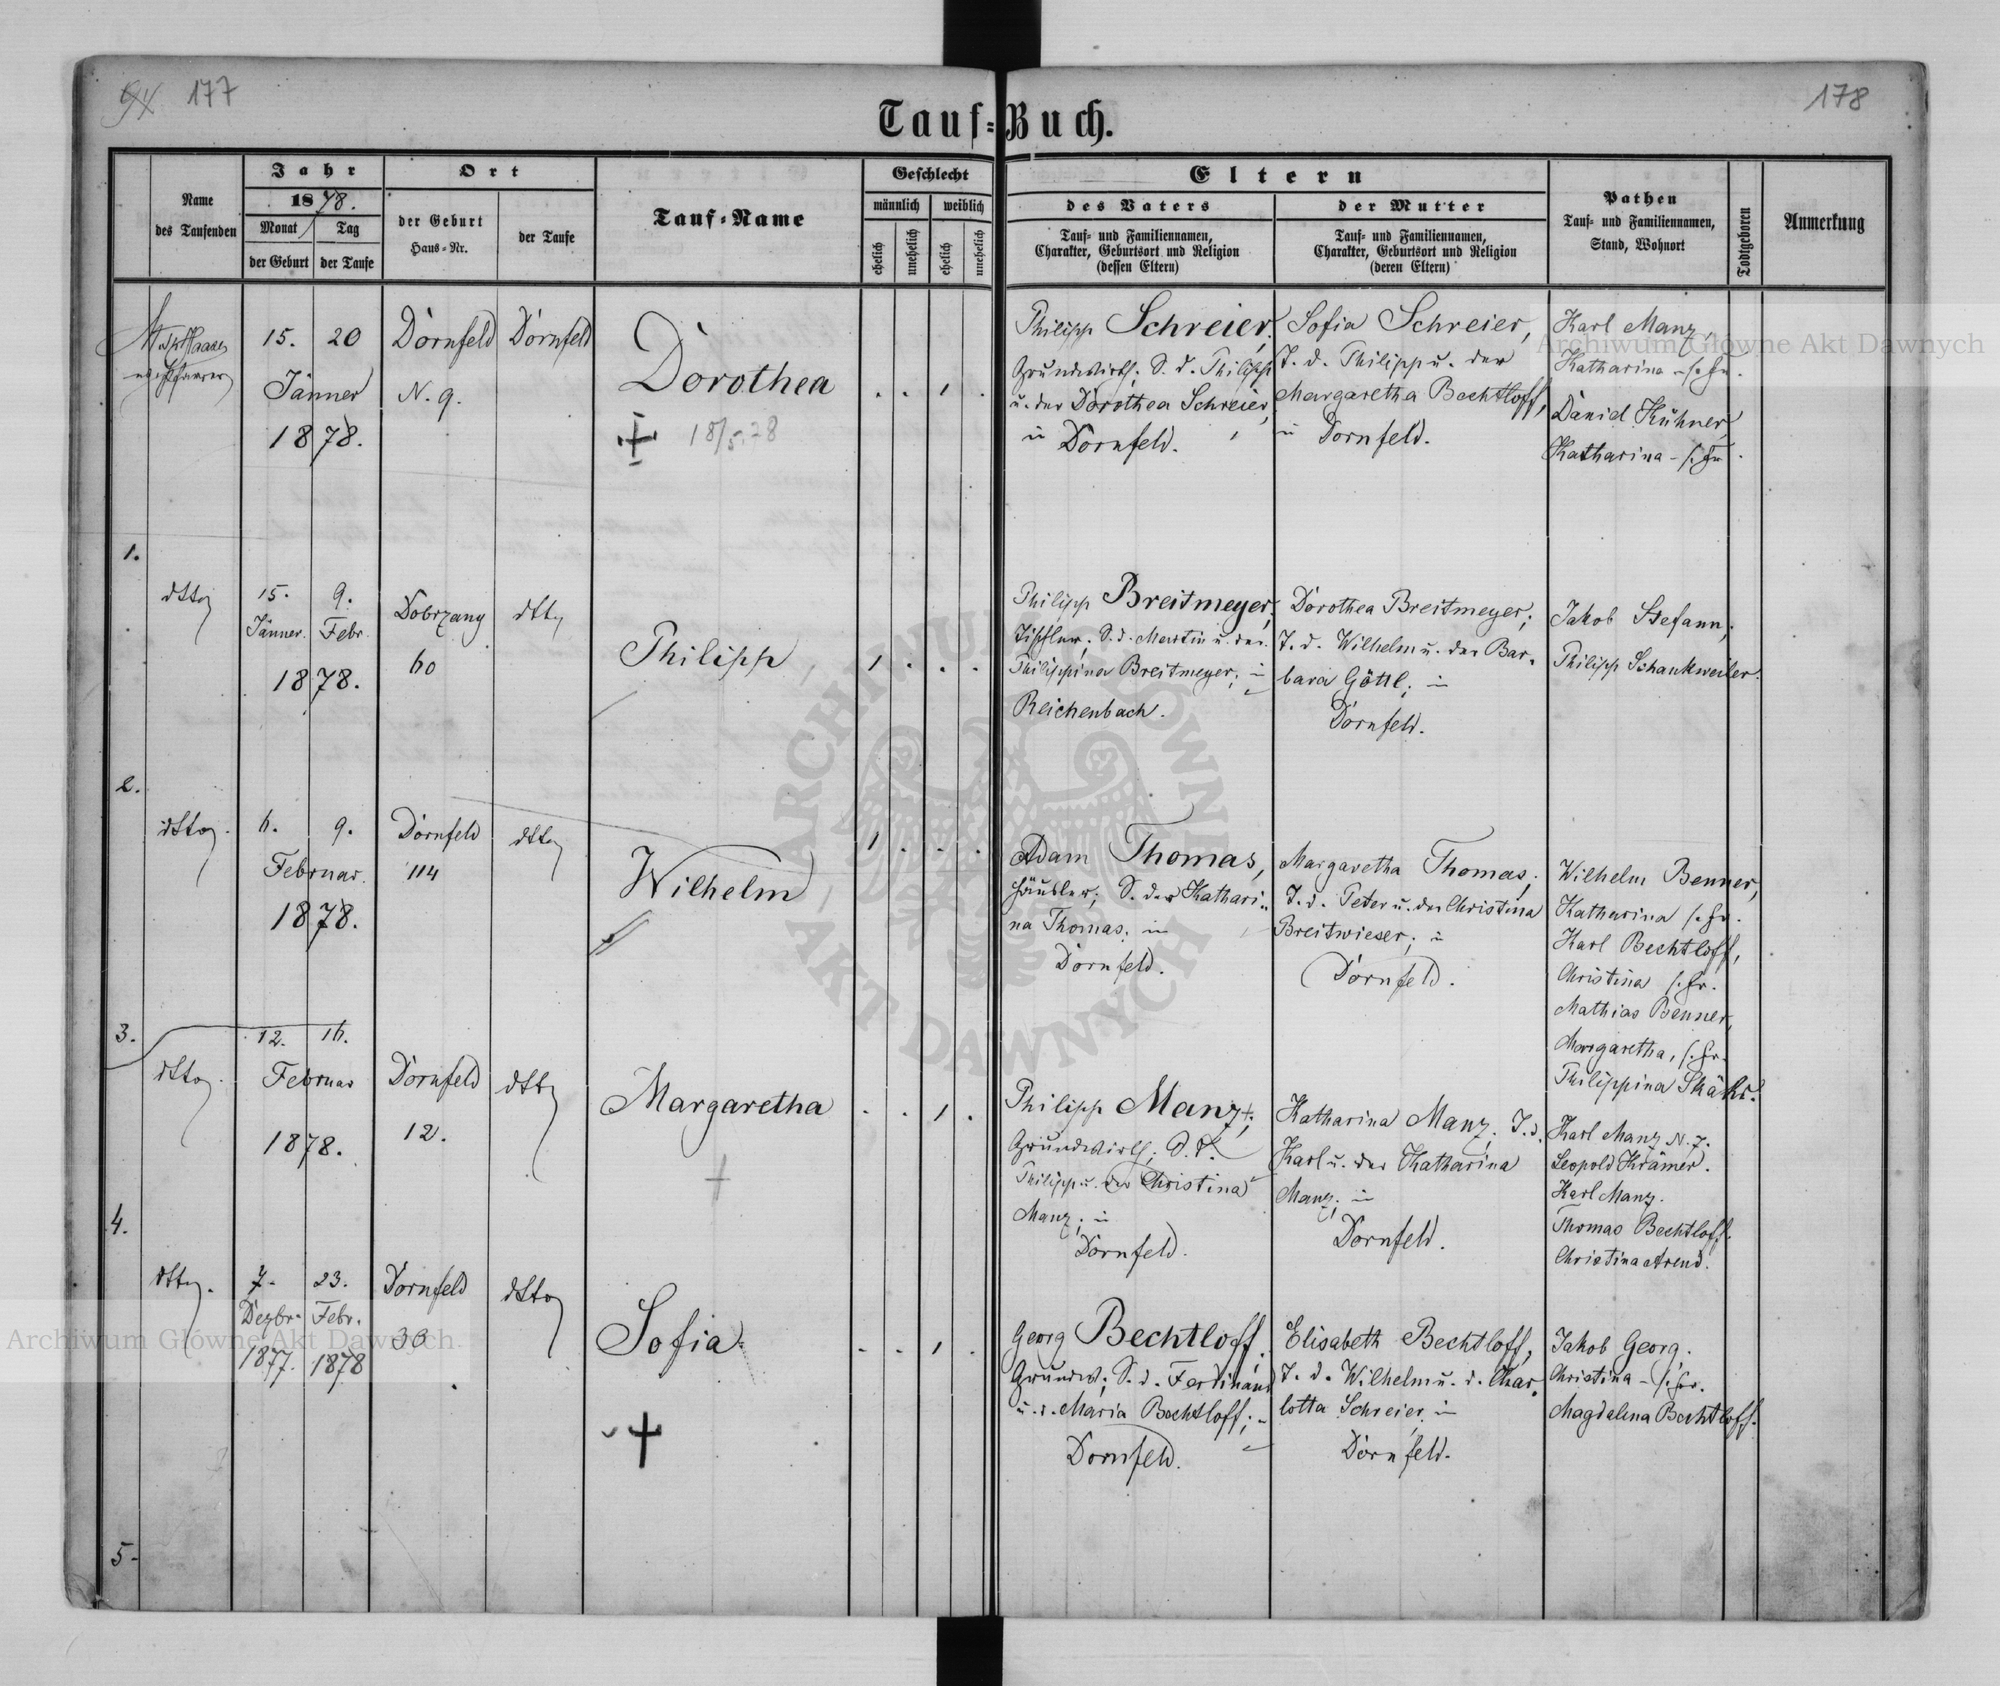 94 177
178
Tauf=Buch.
Name
des Taufenden
Jahr
1878.
Monat
Tag
der Geburt
der Taufe
Ort
der Geburt
Haus=Nr.
der Taufe
Tauf=Name
Geschlecht
männlich
weiblich
ehelich
unehelich
ehelich
unehelich
Eltern
des Vaters
Tauf= und Familiennamen,
Charakter, Geburtsort und Religion
(dessen Eltern)
der Mutter
Tauf= und Familiennamen,
Charakter, Geburtsort und Religion
(deren Eltern)
Pathen
Tauf= und Familiennamen,
Stand, Wohnort
Todtgeboren
Anmerkung
1.
Haase
Pfarrer
15. 20
Jänner
1878.
Dornfeld
N. 9.
Dornfeld
Dorothea
18/5.28
. . 1 .
Philipp Schreier,
Grundwirth; S. d. Philipp
u. der Dorothea Schreier,
in Dornfeld.
Sofia Schreier,
T. d. Philipp u. der
Margaretha Bechtloff,
in Dornfeld.
Karl Manz,
Katharina - s. Fr.
Daniel Kühner,
Katharina - s. Fr.
2.
dtto
15. 9.
Jänner. Febr.
1878.
Dobrzany
60
dtto
Philipp
1 . . .
Philipp Breitmeyer,
Tischler; S. d. Martin u. der
Philippina Breitmeyer; in
Reichenbach.
Dorothea Breitmeyer;
T. d. Wilhelm u. der Bar=
bara Göttl; in
Dornfeld.
Jakob Stefann;
Philipp Schankweiler.
3.
dtto.
6. 9.
Februar.
1878.
Dornfeld
114
dtto
Wilhelm
1 . . .
Adam Thomas,
Häusler; S. der Kathari=
na Thomas; in
Dornfeld.
Margaretha Thomas;
T. d. Peter u. der Christina
Breitwieser; in
Dornfeld.
Wilhelm Benner,
Katharina s. Fr.
Karl Bechtloff,
Christina s. Fr.
Mathias Benner,
Margaretha, s. Fr.
Philippina
4.
dtto.
12. 16.
Februar
1878.
Dornfeld
12.
dtto
Margaretha
. . 1 .
Philipp Manz;
Grundwirth; S. d.
Philipp u. der Christina
Manz; in
Dornfeld.
Katharina Manz; T. d.
Karl u. der Katharina
Manz; in
Dornfeld.
Karl Manz N. 7.
Leopold Krämer.
Karl Manz.
Thomas Bechtloff.
Christina Arend.
5.
dtto.
7. 23.
Dezbr. Febr.
1877. 1878
Dornfeld
30
dtto
Sofia.
. . 1 .
Georg Bechtloff;
Grundw; S. d. Ferdinand
u. d. Maria Bechtloff; -
Dornfeld.
Elisabeth Bechtloff,
T. d. Wilhelm u. d. Char=
lotta Schreier, in
Dornfeld.
Jakob Georg,
Christina - s. Fr.
Magdalena Bechtloff.
Archiwum Główne Akt Dawnych
Archiwum Główne Akt Dawnych
ARCHIWUM GŁÓWNE AKT DAWNYCH